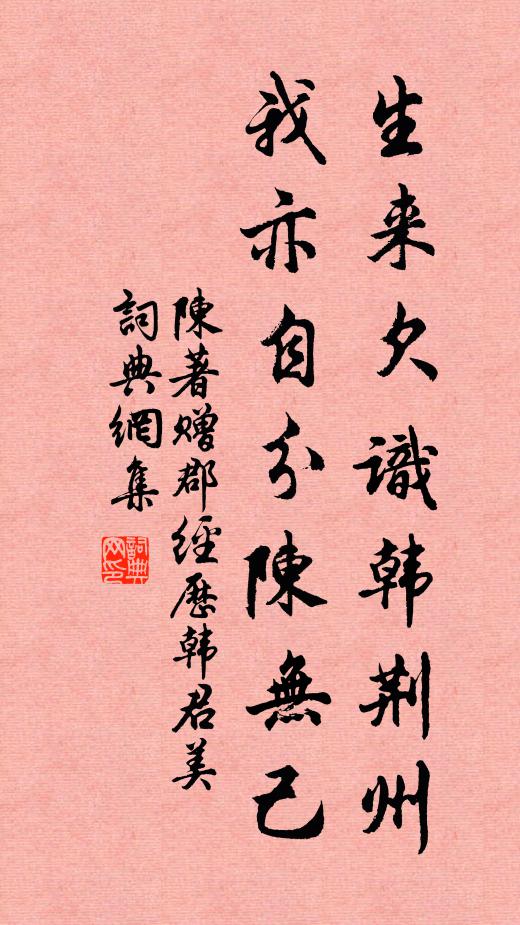 生来欠識韩荆州
我亦自分陳無己
陳著贈郡經歷韩君美
詞典網集
詞典网印